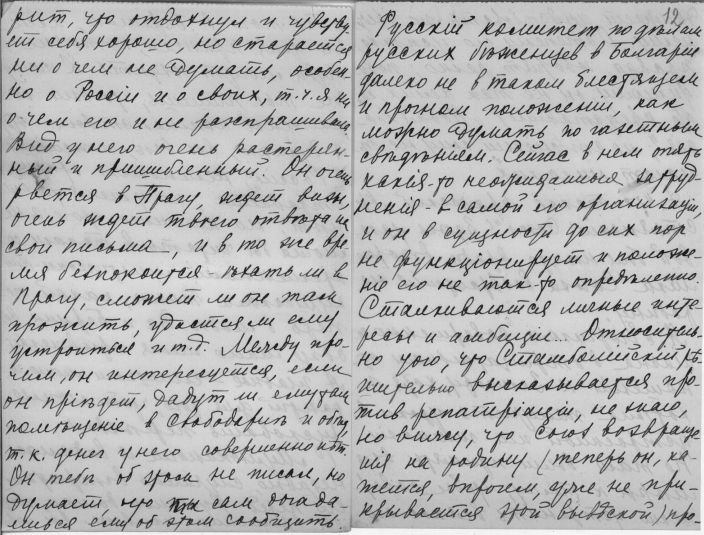 рит, что отдохнул и чувству-
ет себя хорошо, но старается
ни о чем не думать, особен-
но о Россіи и о своих, т.ч. я ни
о чем его и не разспрашивала
Вид у него очень растерян-
ный и пришибленный. Он очень
рвется в Прагу, ждет визы,
очень ждет твоего отвѣта на
свои письма, и в то же вре-
мя безпокоится - ѣхать ли в
Прагу, сможет ли он там
прожить, удастся ли ему
устроиться и т.д. Между про-
чим, он интересуется, если
он пріѣдет, дадут ли ему там
помѣщеніе в Свободарнѣ и обѣд,
т.к. денег у него совершенно нѣт.
Он тебѣ об этом не писал, но
думает, что ты сам догада-
ешься ему об этом сообщить.
12
Русскій комитет по дѣлам
русских бѣженцев в Болгаріи
далеко не в таком блестящем
и прочном положеніи, как
можно думать по газетным
свѣдѣніям. Сейчас в нем опять
какія-то неожиданныя затруд-
ненія в самой его организаціи,
и он в сущности до сих пор
не функціонирует и положе-
ніе его не так-то опредѣленно
Сталкиваются личные инте-
ресы и амбиціи... Относитель-
но того, что Стамболійскій рѣ-
шительно высказывается про-
тив репатріаціи, не знаю,
но вижу, что союз возвраще-
нія на родину (теперь он, ка-
жется, впрочем, уже не при-
крывается этой вывѣской) про-